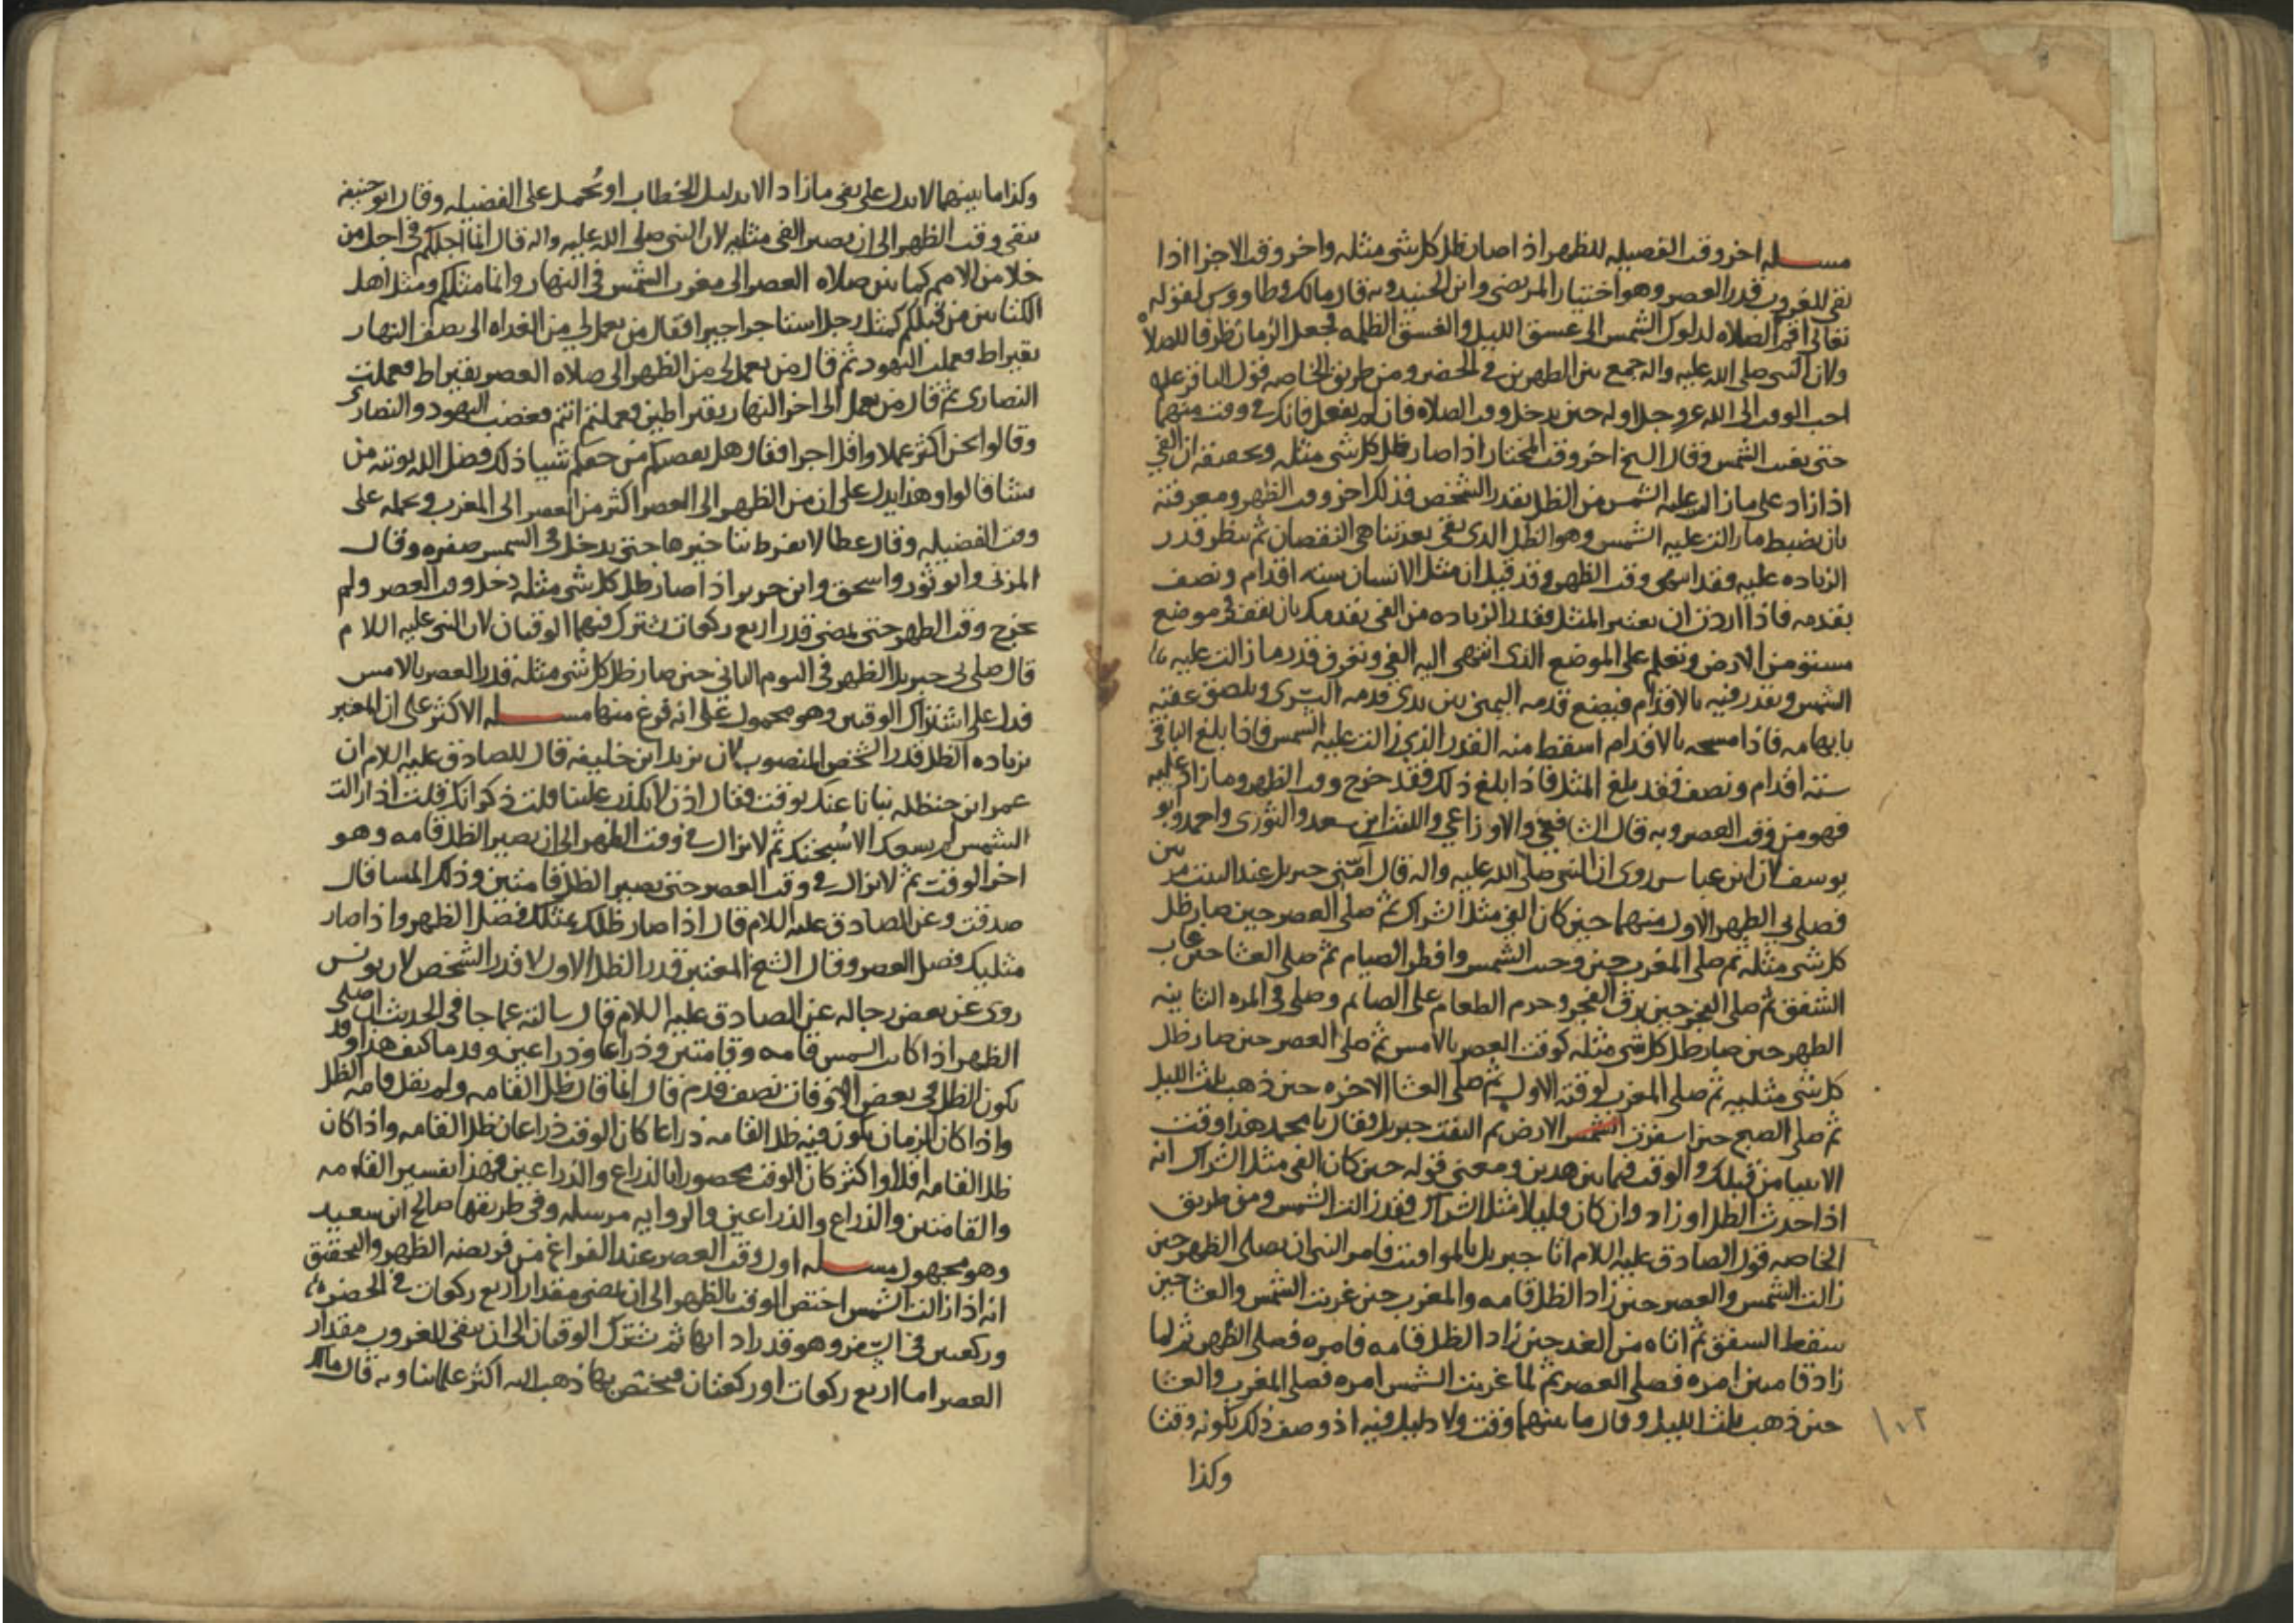 مسـله اخر وقت الفضيله للظهر اذا صار ظل كل شى مثله واخر وقت الاجزا اذا
بقى للغروب قدر العصر وهو اختيار المرتضى وابن الجنيد وبه قال مالك وطاووس لقوله
تعالى اقم الصلاه لدلوك الشمس الى غسق الليل والغسق الظلمه فجعل الزمان ظرفا للصلاة
ولان النبى صلى الله عليه واله جمع بين الظهرين في الحضر ومن طريق الخاصه قول الباقر عليه
احب الوقت الى الله عز وجل اوله حين يدخل وقت الصلاه فان لم يفعل فانك في وقت منهما
حتى تغيب الشمس وقال الشيخ اخر وقت المختار اذا صار ظل كل شى مثله وتحقيقه ان الفي
اذا زاد على ما زالت عليه الشمس من الظل بقدر الشخص فذلك اخر وقت الظهر ومعرفته
بان يضبط ما زالت عليه الشمس وهو الظل الذى بقى بعد تناهى النقصان ثم ينظر قدر
الزياده عليه وقد انتهى وقت الظهر وقد قيل ان مثل الانسان سته اقدام ونصف
بقدمه فاذا اردت ان تعتبر المثل فقدر الزياده من الفى بقدمك بان تقف في موضع
مستو من الارض وتعلم على الموضع الذى انتهى اليه الفي وتعرف قدر ما زالت عليه
الشمس ويقدر فيه بالاقدام فيضع قدمه اليمنى بين يدى قدمه اليسرى ويلصق عقبه
بابهامه فاذا مسحه بالاقدام اسقط منه القدر الذي زالت عليه الشمس فاذا بلغ الباقى
سته اقدام ونصف فقد بلغ المثل فاذا بلغ ذلك فقد خرج وقت الظهر وما زاد عليه
فهو من وقت العصر وبه قال الشافعي والاوزاعي والليث ابن سعد والثورى واحمد وابو
يوسف لان ابن عباس روى ان النبى صلى الله عليه واله قال امّنى جبريل عند البيت مرتين
فصلى بي الظهر الاولى منهما حين كان الفى مثل الشراك ثم صلى العصر حين صار ظل
كل شى مثله ثم صلى المغرب حين وجبت الشمس وافطر الصيام ثم صلى العشا حين غاب
الشفق ثم صلى الفجر حين برق الفجر وحرم الطعام على الصايم وصلى في المره الثانيه
الظهر حين صار ظل كل شى مثله كوقت العصر بالامس ثم صلى العصر حين صار ظل
كل شى مثليه ثم صلى المغرب لوقته الاول ثم صلى العشا الاخره حين ذهب ثلث الليل
ثم صلى الصبح حين اسفرت الشمس الارض ثم التفت جبريل فقال يا محمد هذا وقت
الانبيا من قبلك والوقت فيما بين هذين ومعنى قوله حين كان الفى مثل الشراك انه
اذا حدث الظل او زاد وان كان قليلا مثل الشراك فقد زالت الشمس ومن طريق
الخاصه قول الصادق عليه اللام اتا جبريل بالمواقيت فامر النبى ان يصلى الظهر حين
زالت الشمس والعصر حين زاد الظل قامه والمغرب حين غربت الشمس والعشا حين
سقط الشفق ثم اتاه من الغد حين زاد الظل قامه فامره فصلى الظهر ثم لما
زاد قامتين امره فصلى العصر ثم لما غربت الشمس امره فصلى المغرب والعشا
حين ذهب ثلث الليل وقال ما بينهما وقت ولا دليل فيه اذ وصف ذلك بكونه وقتا
١٠٢
وكذا
وكذا ما بينهما لا يدل على نفى ما زاد الا بدليل الخطاب او يُحمل على الفضيله وقال ابو حنيفه
يبقى وقت الظهر الى ان يصير الفى مثليه لان النبى صلى الله عليه واله قال انما اجلكم في اجل من
خلا من الامم كما بين صلاه العصر الى مغرب الشمس في النهار وانما مثلكم ومثل اهل
الكتابين من قبلكم كمثل رجل استاجر اجيرا فقال من يعمل لي من الغداه الى نصف النهار
بقيراط فعملت اليهود ثم قال من يعمل لى من الظهر الى صلاه العصر بقيراط فعملت
النصارى ثم قال من يعمل الى اخر النهار بقيراطين فعملتم انتم فغضب اليهود والنصارى
وقالوا نحن اكثر عملا واقل اجرا فقال هل نقصتكم من حقكم شيا ذلك فضل الله يوتيه من
يشا قالوا وهذا يدل على ان من الظهر الى العصر اكثر من العصر الى المغرب ويحمله على
وقت الفضيله وقال عطا لا تفرط بتاخيرها حتى يدخل في الشمس صفره وقال
المزنى وابو ثور واسحق وابن جرير اذا صار ظل كل شى مثله دخل وقت العصر ولم
يخرج وقت الظهر حتى يمضى قدر اربع ركعات يشترك فيهما الوقتان لان النبى عليه اللام
قال صلى بى جبريل الظهر فى اليوم الثانى حين صار ظل كل شى مثله قدر العصر بالامس
فدل على اشتراك الوقتين وهو محمول على انه فرغ منها مسـله الاكثر على ان المعتبر
بزياده الظل قدر الشخص المنصوب لان يزيد ابن خليفه قال للصادق عليه اللام ان
عمر ابن حنظله نبانا عنك بوقت فقال اذن لا يكذب علينا قلت ذكر انك قلت اذا زالت
الشمس لم يمنعك الا سُبحتك ثم لا تزال في وقت الظهر الى ان يصير الظل قامه وهو
اخر الوقت ثم لا تزال في وقت العصر حتى يصير الظل قامتين وذلك المسا قال
صدقت وعن الصادق عليه اللام قال اذا صار ظلك مثلك فصل الظهر واذا صار
مثليك فصل العصر وقال الشيخ المعتبر قدر الظل الاول لا قدر الشخص لان يونس
روى عن بعض رجاله عن الصادق عليه اللام قال سالته عما جا في الحديث ان صلى
الظهر اذا كانت الشمس قامه وقامتين وذراعا وذراعين وقدما كيف هذا وقد
يكون الظل في بعض الاوقات نصف قدم قال انما قال ظل القامه ولم يقل قامه الظل
واذا كان الزمان يكون فيه ظل القامه ذراعا كان الوقت ذراعا من ظل القامه واذا كان
ظل القامه اقل او اكثر كان الوقت محصورا بالذراع والذراعين فهذا تفسير القامه
والقامتين والذراع والذراعين والروايه مرسله وفى طريقها صالح ابن سعيد
وهو مجهول مسـله اول وقت العصر عند الفراغ من فريضه الظهر والتحقيق
انه اذا زالت الشمس اختص الوقت بالظهر الى ان يمضى مقدار اربع ركعات في الحضر
وركعتين في السفر وهو قدر ادايها ثم يشترك الوقتان الى ان يبقى للغروب مقدار
العصر اما اربع ركعات او ركعتان فيختص بها ذهب اليه اكثر علماينا وبه قال مالك